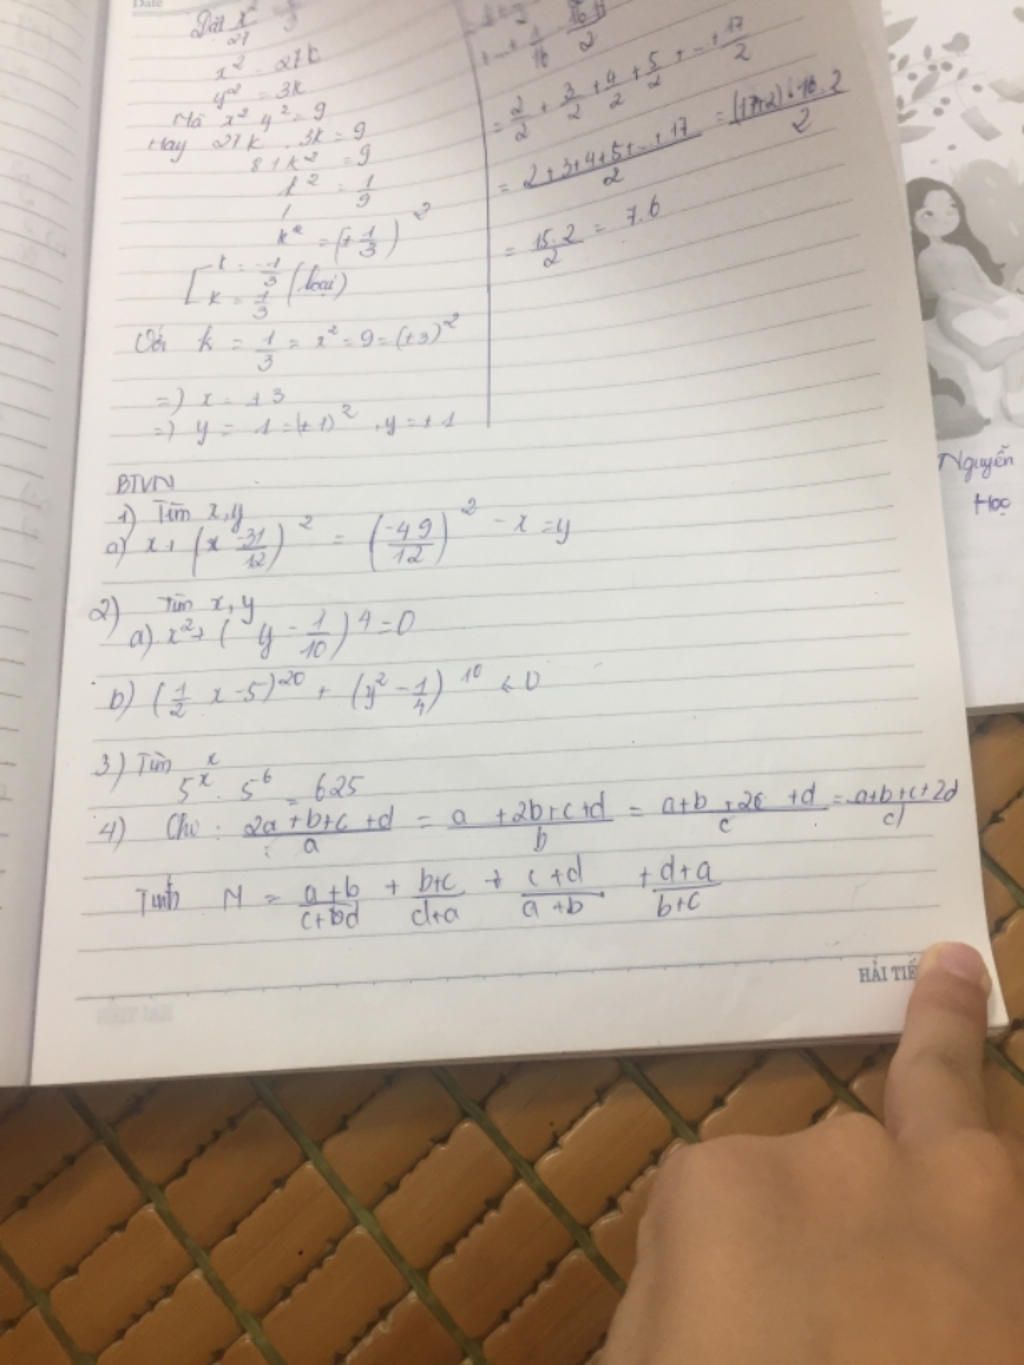 Date
Đặt x²/27
x² = 27k
y² = 3k
Mà x² y² = 9
Hay 27k . 3k = 9
81k² = 9
k² = 1/9
k² = (± 1/3)²
[ k = -1/3 (loại)
k = 1/3
Với k = 1/3 = x² = 9 = (±3)²
=) x = ±3
=) y = 1 = (±1)² , y = ±1
= 2/2 + 3/2 + 4/2 + 5/2 + ... + 17/2
= (2+3+4+5+...+17)/2 = (17+2).16.2/2
= 15.2/2 = 7.6
BTVN
1) Tìm x,y
a) x + (x -31/12)² = (-49/12)² - x = y
2) Tìm x, y
a) x² + ( y - 1/10)4 = 0
b) (1/2 x - 5)^20 + (y² - 1/4)^10 ≤ 0
3) Tìm x
5^x . 5^6 = 625
4) Cho : (2a+b+c+d)/a = (a+2b+c+d)/b = (a+b+2c+d)/c = (a+b+c+2d)/d
Tính M = (a+b)/(c+d) + (b+c)/(d+a) + (c+d)/(a+b) + (d+a)/(b+c)
HẢI TIẾ
Nguyễn
Học